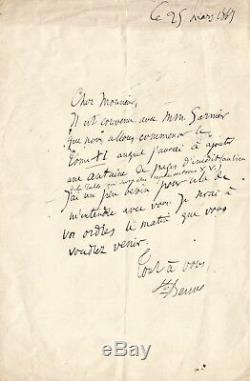 Ce 25 mars 1869
Cher Monsieur,
Il est convenu avec Mon. Garnier
que nous allons commencer le
Tome XI auquel j'aurai à ajouter
une centaine de pages
J'ai un peu besoin pour cela de
m'entendre avec vous. Je serai à
vos ordres le matin que vous
voudrez venir.
Tout à vous,
Ste Beuve